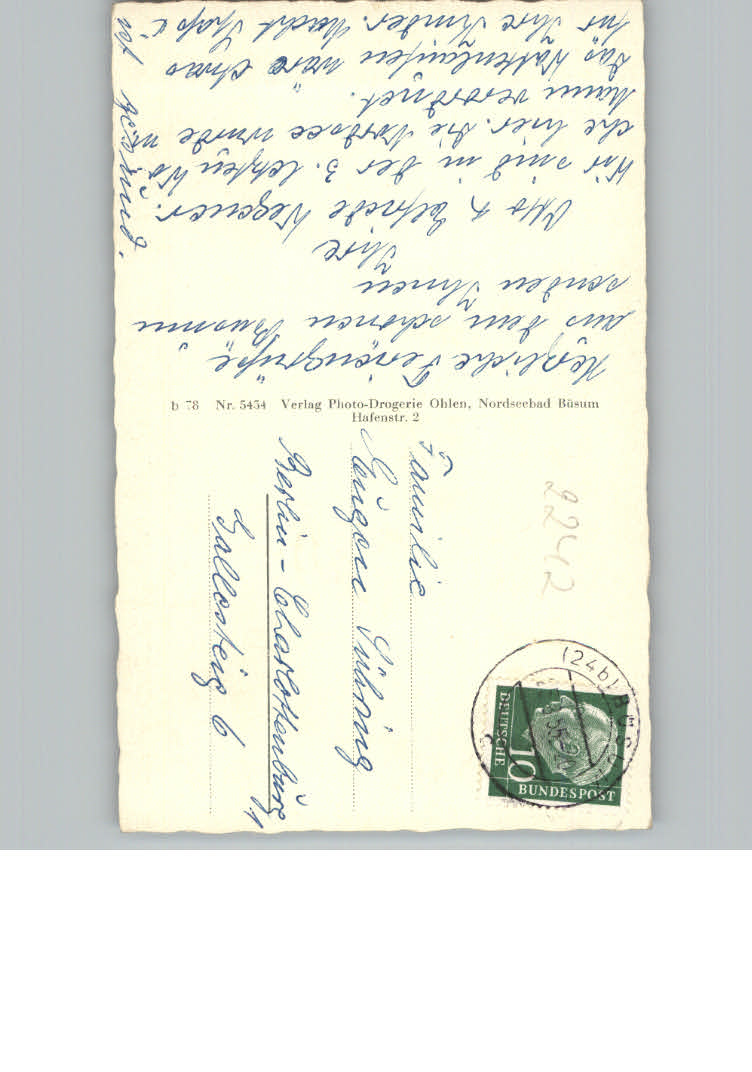 Herzliche Feriengrüße
aus dem schönen Büsum
senden Ihnen
Ihre
Otto & Elfriede Wegener.
Wir sind in der 3. letzten Wo
che hier. Die Nordsee wurde m.
Mann verordnet.
Das Wattenlaufen wäre etwas
für Ihre Kinder. Macht Spaß u.
ist gesund.
b 78 Nr. 5434 Verlag Photo-Drogerie Ohlen, Nordseebad Büsum
Hafenstr. 2
Familie
Eugen Sühring
Berlin-Charlottenburg 9
Sallosteig 6
2242
(24b) BÜSUM
DEUTSCHE
10
BUNDESPOST